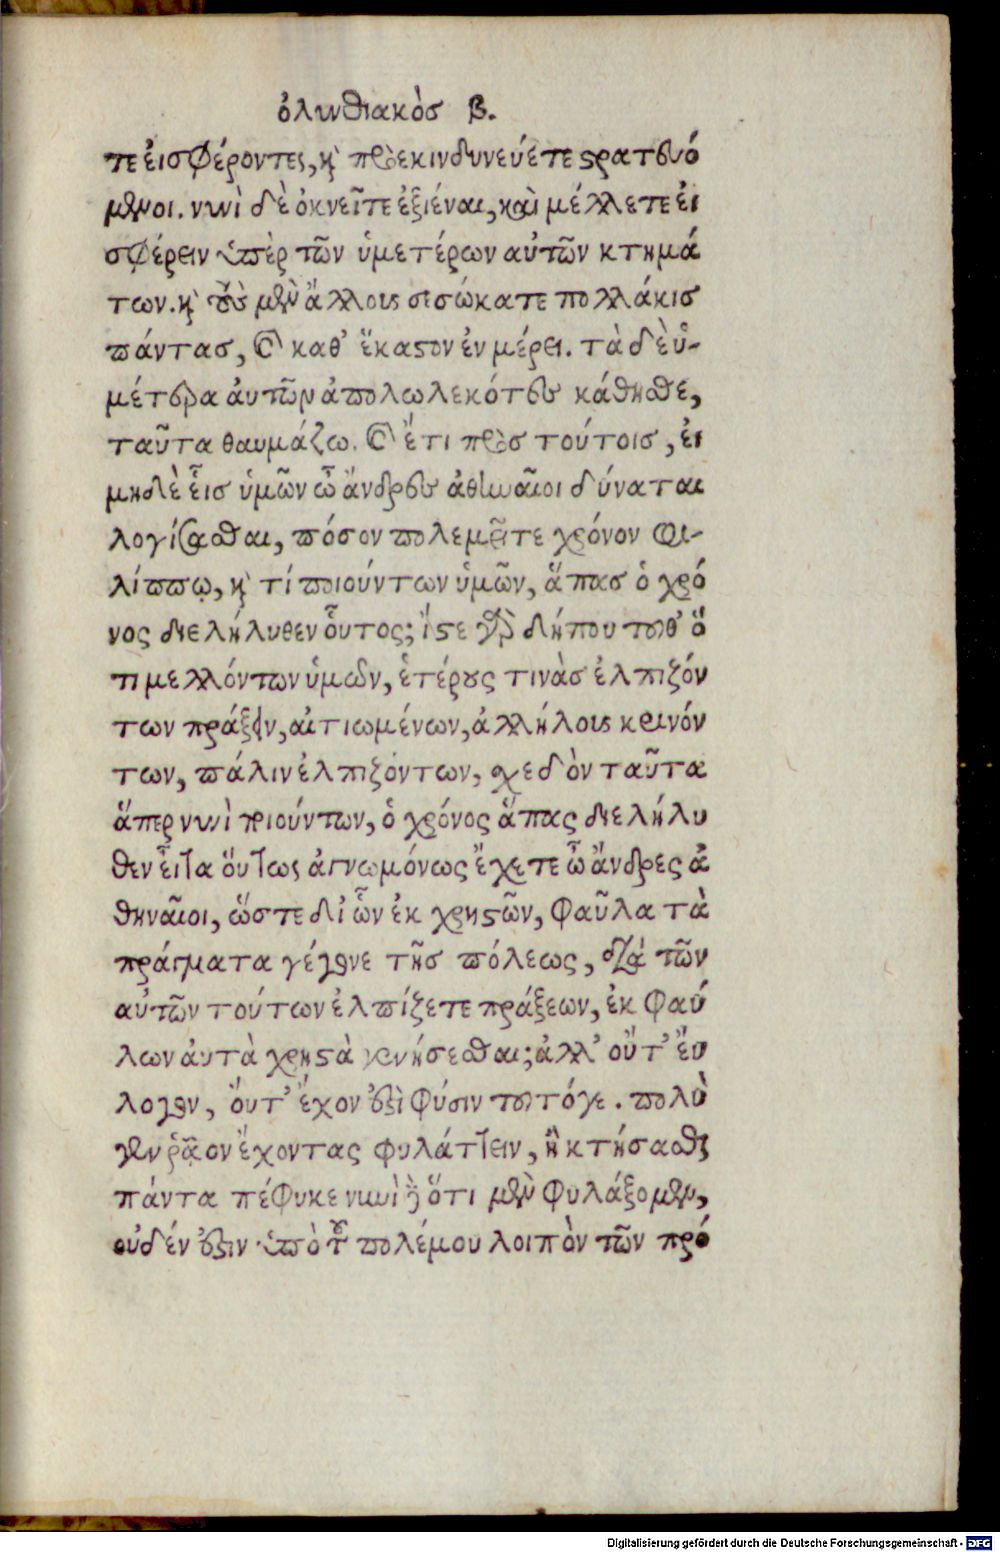 ὀλυνθιακὸσ β.
τε ἐισφέροντες, κỳ προεκινδυνεύετε στρατευό
μενοι. νυνὶ δὲ ὀκνεῖτε ἐξιέναι, καὶ μέλλετε ἐι
σφέρειν ὑπὲρ τῶν ὑμετέρων αὐτῶν κτημά
των. κỳ τοὺσ μὲν ἄλλους σεσώκατε πολλάκισ
πάντασ, ϗ καθ' ἕκαστον ἐν μέρει. τὰ δὲ ὑ-
μέτερα ἀυτῶν ἀπολωλεκότες κάθησθε,
ταῦτα θαυμάζω. ϗ ἔτι πρὸσ τούτοισ, ἐι
μηδὲ ἕισ ὑμῶν ὦ ἄνδρες ἀθηναῖοι δύναται
λογίσασθαι, πόσον πολεμεῖτε χρόνον φι-
λίππῳ, κỳ τί ποιούντων ὑμῶν, ἅπασ ὁ χρό
νος διελήλυθεν οὗτος; ἴστε γὰρ δήπου τοῦθ' ὅ
τι μελλόντων ὑμῶν, ἑτέρους τινὰσ ἐλπιζόν
των πράξειν, αἰτιωμένων, ἀλλήλους κρινόν
των, πάλιν ἐλπιζόντων, σχεδὸν ταῦτα
ἅπερ νυνὶ ποιούντων, ὁ χρόνος ἅπας διελήλυ
θεν εἶτα ὅυτως ἀγνωμόνως ἔχετε ὦ ἄνδρες ἀ
θηναῖοι, ὥστε δι' ὧν ἐκ χρηστῶν, φαῦλα τὰ
πράγματα γέγονε τῆσ πόλεως, διὰ τῶν
αὐτῶν τούτων ἐλπίζετε πράξεων, ἐκ φαύ
λων ἀυτὰ χρηστὰ γενήσεσθαι; ἀλλ' οὔτ' ἔυ
λογον, ὄυτ' ἔχον ἐστὶ φύσιν τοῦτόγε. πολὺ
γὰρ ῥᾷον ἔχοντας φυλάττειν, ἢ κτήσασθαι
πάντα πέφυκε νυνὶ δὲ ὅτι μὲν φυλάξομεν,
ουδέν ἐστιν ὑπὸ τοῦ πολέμου λοιπὸν τῶν πρό
Digitalisierung gefördert durch die Deutsche Forschungsgemeinschaft - DFG